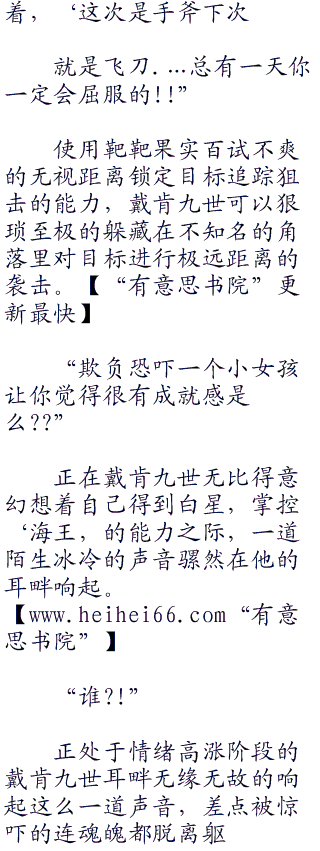 着，‘这次是手斧下次
就是飞刀....总有一天你
一定会屈服的!!”
使用靶靶果实百试不爽
的无视距离锁定目标追踪狙
击的能力，戴肯九世可以狠
琐至极的躲藏在不知名的角
落里对目标进行极远距离的
袭击。【“有意思书院”更
新最快】
“欺负恐吓一个小女孩
让你觉得很有成就感是
么??”
正在戴肯九世无比得意
幻想着自己得到白星，掌控
‘海王，的能力之际，一道
陌生冰冷的声音骤然在他的
耳畔响起。
【www.heihei66.com“有意
思书院”】
“谁?!”
正处于情绪高涨阶段的
戴肯九世耳畔无缘无故的响
起这么一道声音，差点被惊
吓的连魂魄都脱离躯